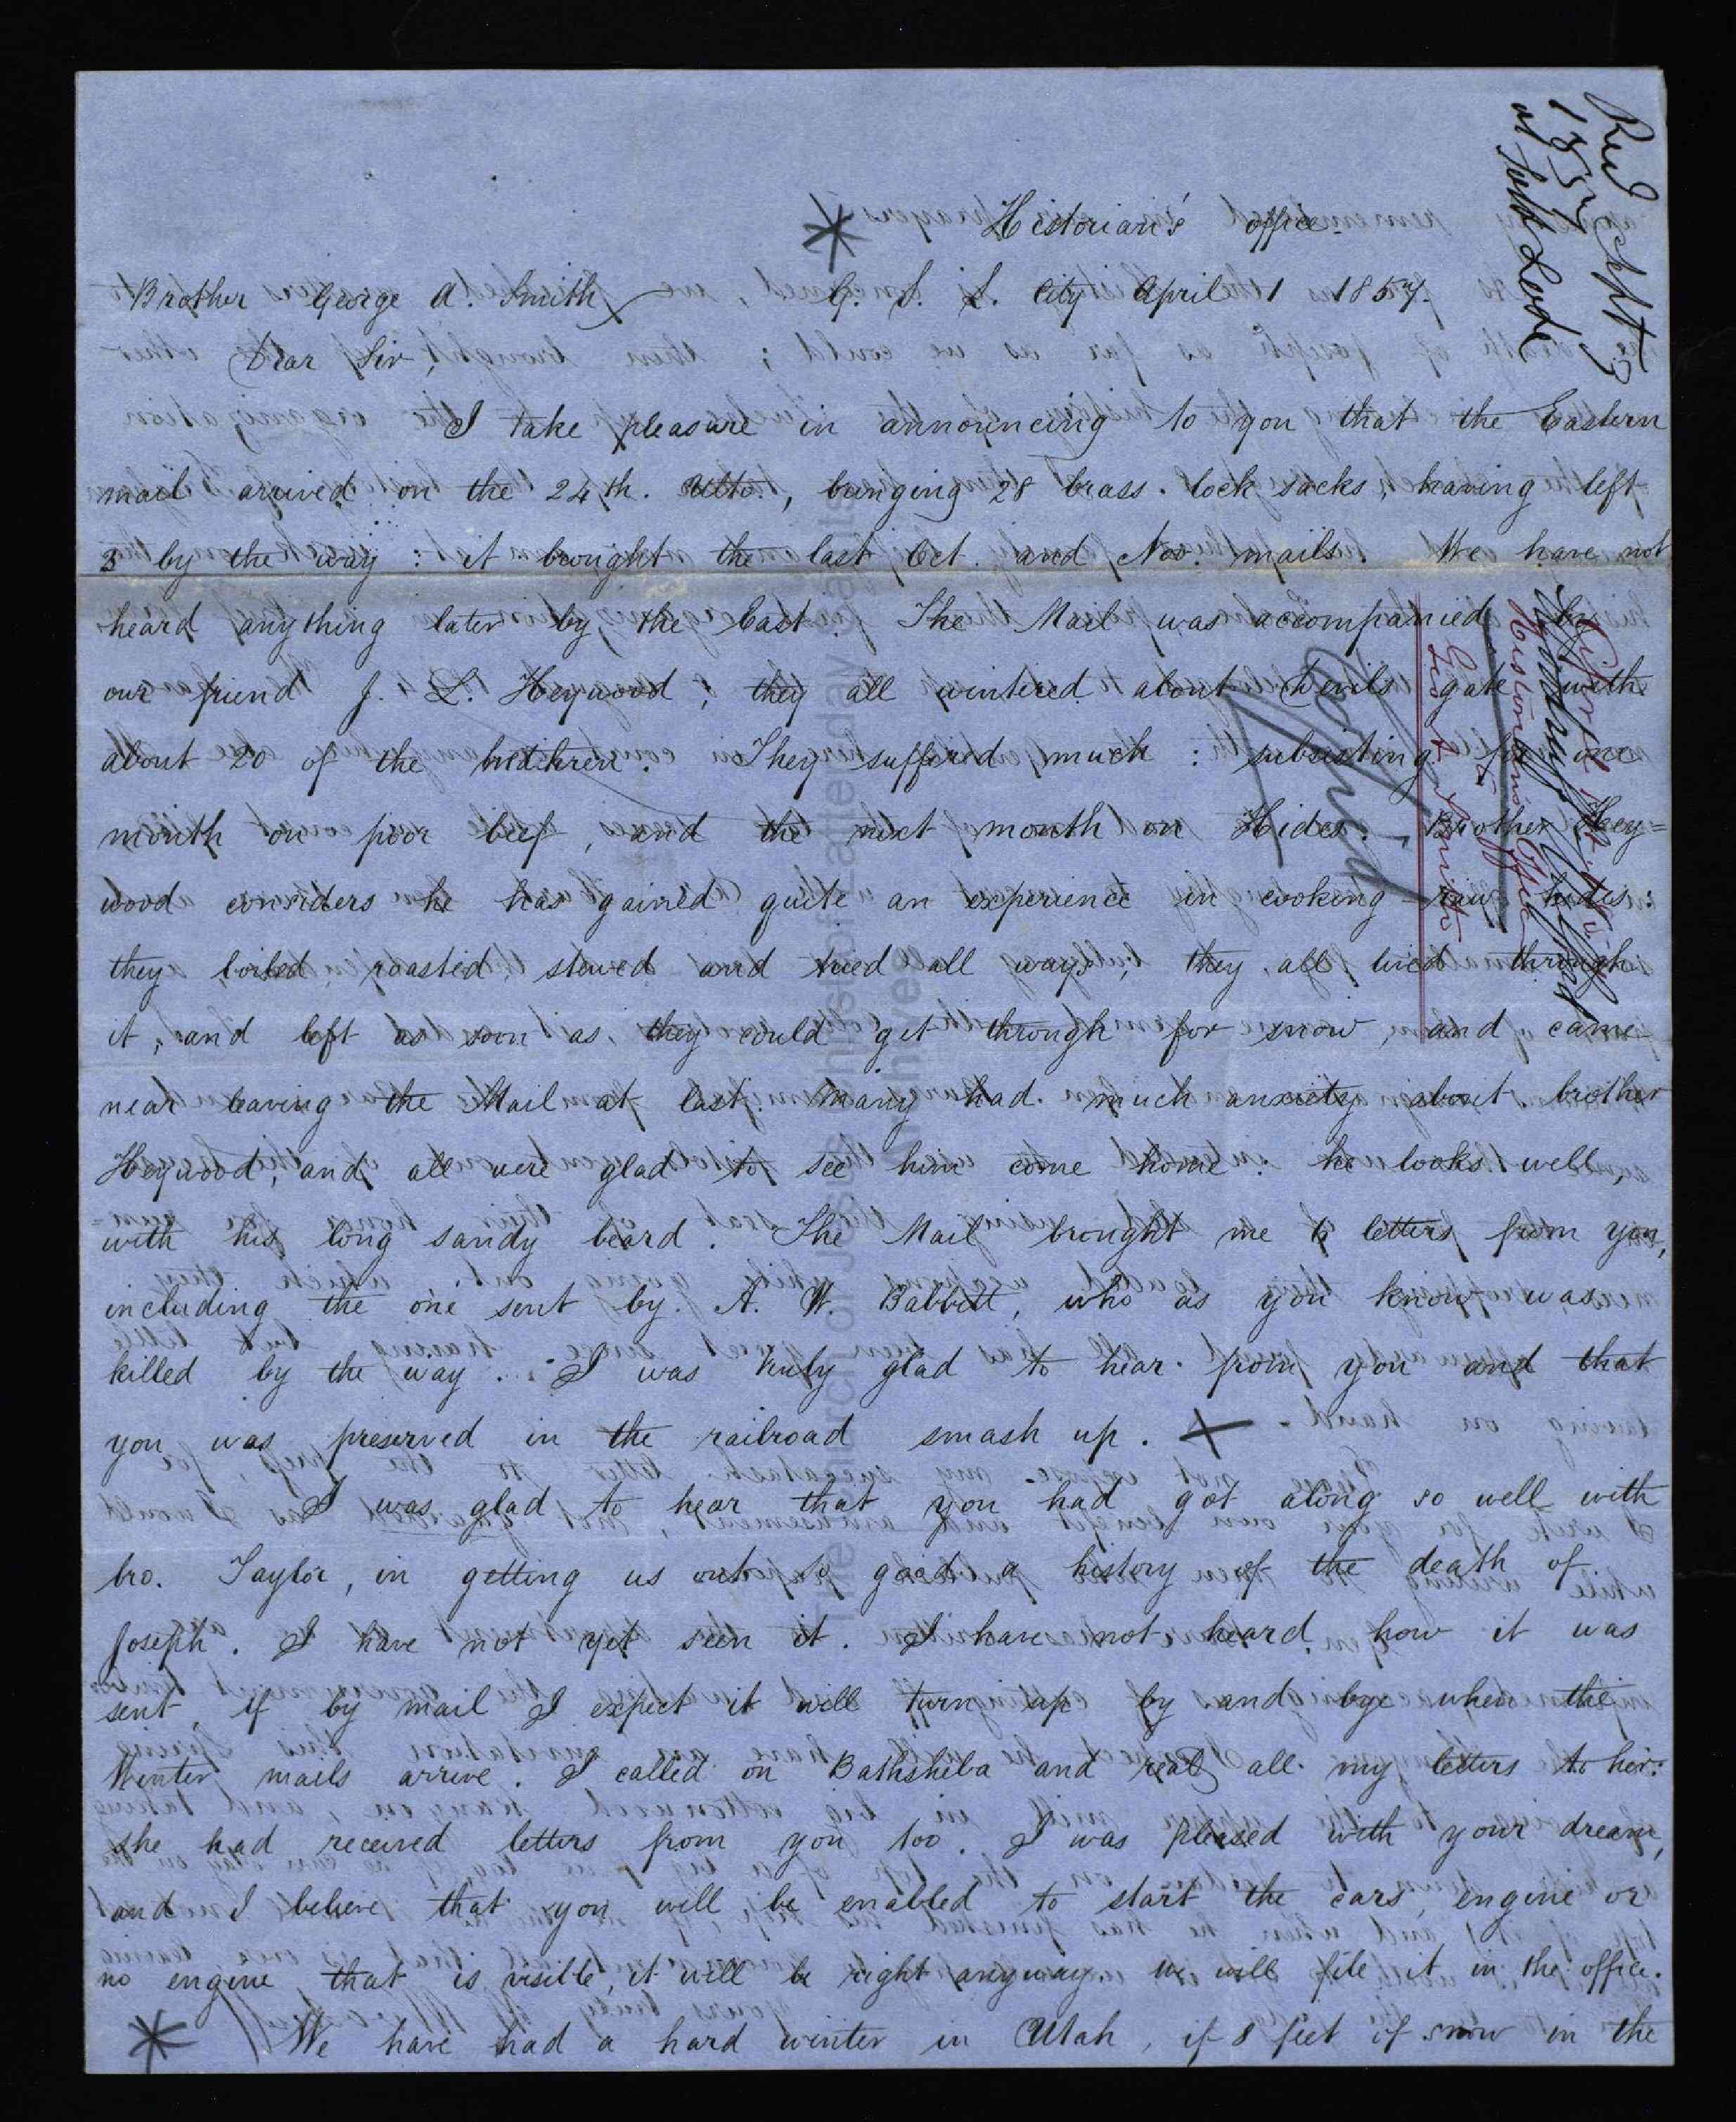 Historian's office.
Brother George A. Smith G. S. L. City April 1 1857.
Dear Sir,
I take pleasure in announcing to you that the Eastern
mail arrived on the 24th. Ulto, bringing 28 brass. lock sacks, having left
3 by the way: it brought the last Oct. and Nov. mails. We have not
heard anything later by the East. The Mail was accompanied by
our friend J. L. Heywood; they all wintered about Devils gate with
about 20 of the brethren. They suffered much: subsisting for one
month on poor beef, and the next month on Hides. Brother Hey=
wood considers he has gained quite an experience in cooking raw hides:
they boiled, roasted, stewed and tried all ways, they all lived through
it, and left as soon as they could get through for snow, and came
near leaving the Mail at last. Many had much anxiety about brother
Heywood, and all were glad to see him come home: he looks well,
with his long sandy beard. The Mail brought me 6 letters from you,
including the one sent by A. W. Babbitt, who as you know was
killed by the way. I was truly glad to hear from you and that
you was preserved in the railroad smash up. X
I was glad to hear that you had got along so well with
bro. Taylor, in getting us out so good a history of the death of
Joseph. I have not yet seen it. I have not heard how it was
sent if by mail I expect it will turn up by and bye when the
Winter mails arrive. I called on Bathsheba and read all my letters to her:
she had received letters from you too. I was pleased with your dream,
and I believe that you will be enabled to start the cars, engine or
no engine that is visible, it will be right anyway. we will file it in the office.
We have had a hard winter in Utah, if 8 feet of snow in the
Recd Sept 3
1857
Copied
April 1st. 1857.
Historians Office
Woodruff Wilford
to
Geo A. Smith